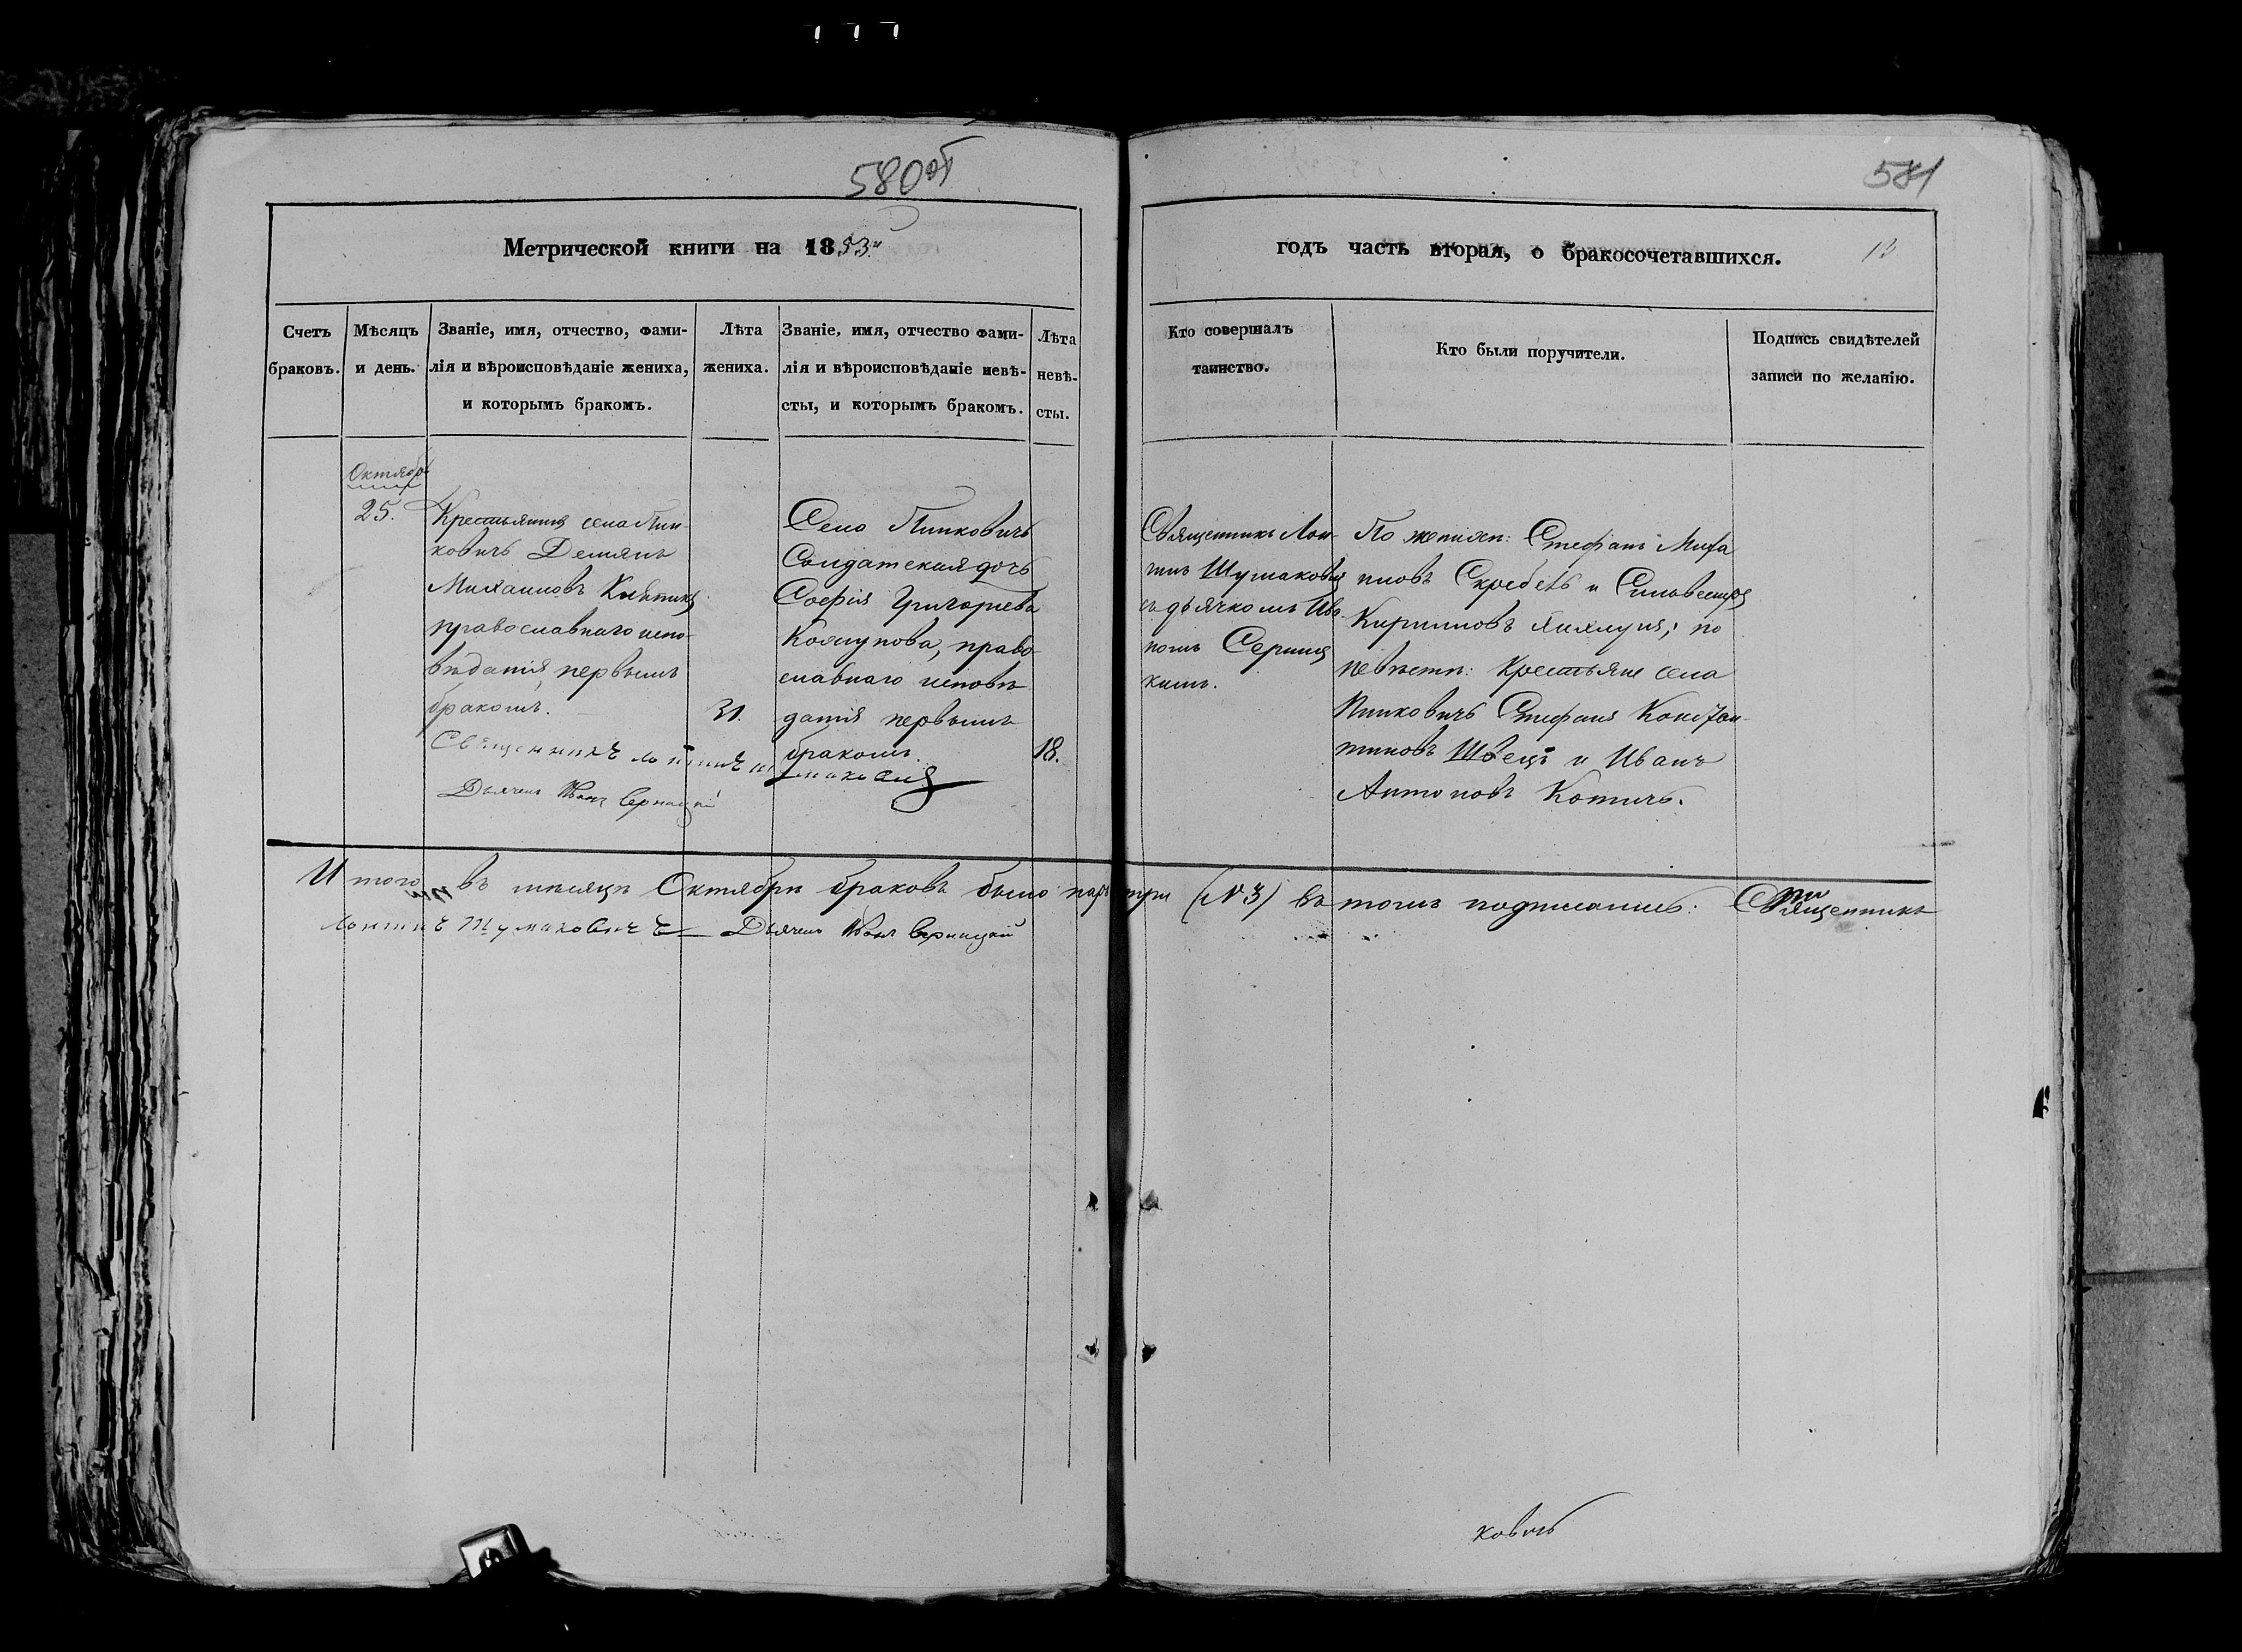 580 об
581
Метрической книги на 1853 й
годъ часть вторая, о бракосочетавшихся.
Счетъ браковъ.
Мѣсяцъ и день.
Званіе, имя, отчество, фами-
лія и вѣроисповѣданіе жениха,
и которымъ бракомъ.
Лѣта
жениха.
Званіе, имя, отчество фами-
лія и вѣроисповѣданіе невѣ-
сты, и которымъ бракомъ.
Лѣта
невѣ-
сты.
Кто совершалъ
таинство.
Кто были поручители.
Подпись свидѣтелей
записи по желанію.
Октября
25.
Крестьянинъ села Пин-
ковичъ Демянъ
Михаиловъ
православнаго испо-
вѣданія первымъ
бракомъ.
31.
Село Пинковичъ
Солдатская дочь
Софія Григорьева
Колтунова, право-
славнаго исповѣ
данія первымъ
бракомъ.
18.
Священникъ Лон-
гинъ Шумаковичъ
съ дьячкомъ Ива-
номъ Серниц
кимъ.
По женихѣ: Стефанъ Миха
иловъ Скребецъ и Сильвестръ
Кирилловъ по
невѣстѣ: Крестьяне села
Пинковичъ Стефанъ Констан-
тиновъ Швецъ и Иванъ
Антоновъ Котичъ.
Священникъ Лонгинъ Шумаковичъ
Дьячекъ Иванъ Серницкій
Итого въ мѣсяцѣ Октябрѣ браковъ было паръ три (№ 3) въ томъ подписались: Священникъ
Лонгинъ Шумаковичъ Дьячекъ Иванъ Серницкій
ковичъ